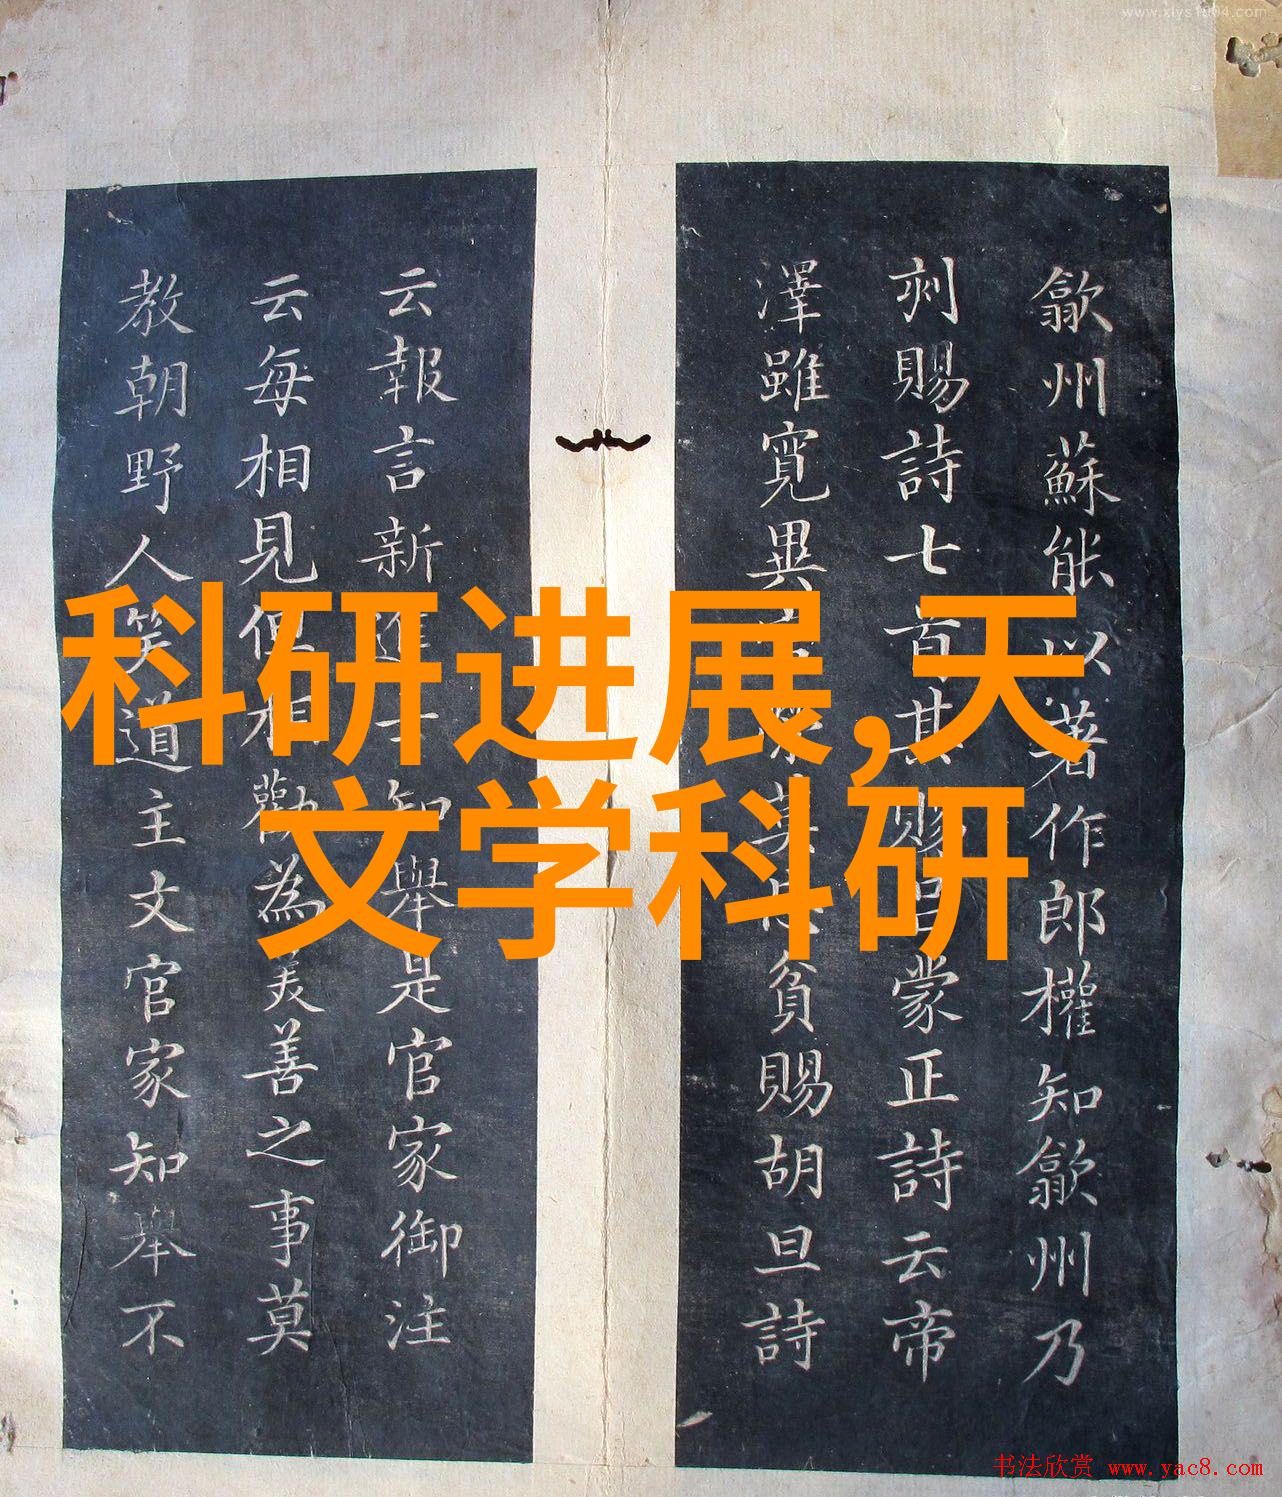 www.xlys1904.com
歙州蘇能以著作郎權知歙州乃
刾賜詩七首其賜呂蒙正詩云帝
澤雖寬異貧賜胡旦詩
云報言新進士知舉是官家御注
云每相見但相勸為美善之事莫
教朝野人笑道主文官家知舉不
科研进展,天
文学科研
书法欣赏 www.yac8.com